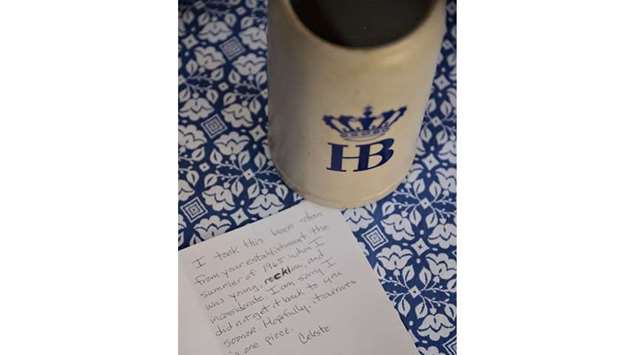 HB
I took this beer stein
from your establishment the
summer of 1965 when I
was young, reckless, and
inconsiderate. I am sorry I
did not get it back to you
sooner. Hopefully, it arrives
in one piece.
Celeste